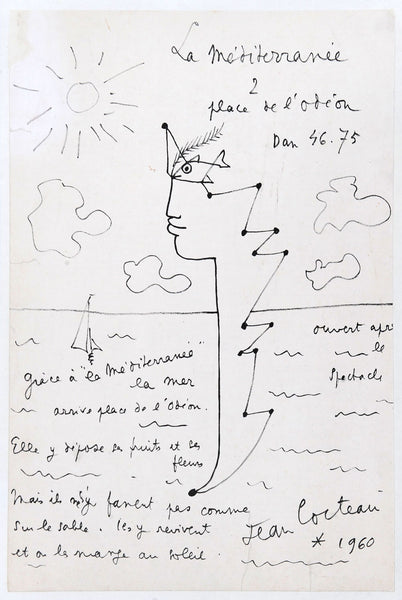 La Méditerranée
2
place de l'Odéon
Dan 46.75
ouvert apr
le
spectacle
grâce à "la Méditerranée"
la mer
arrive place de l'Odéon.
Elle y dépose ses fruits et ses
fleurs
Mais ils n's'y fanent pas comme
sur le sable. Ils y revivent
et on les mange au soleil.
Jean Cocteau
* 1960